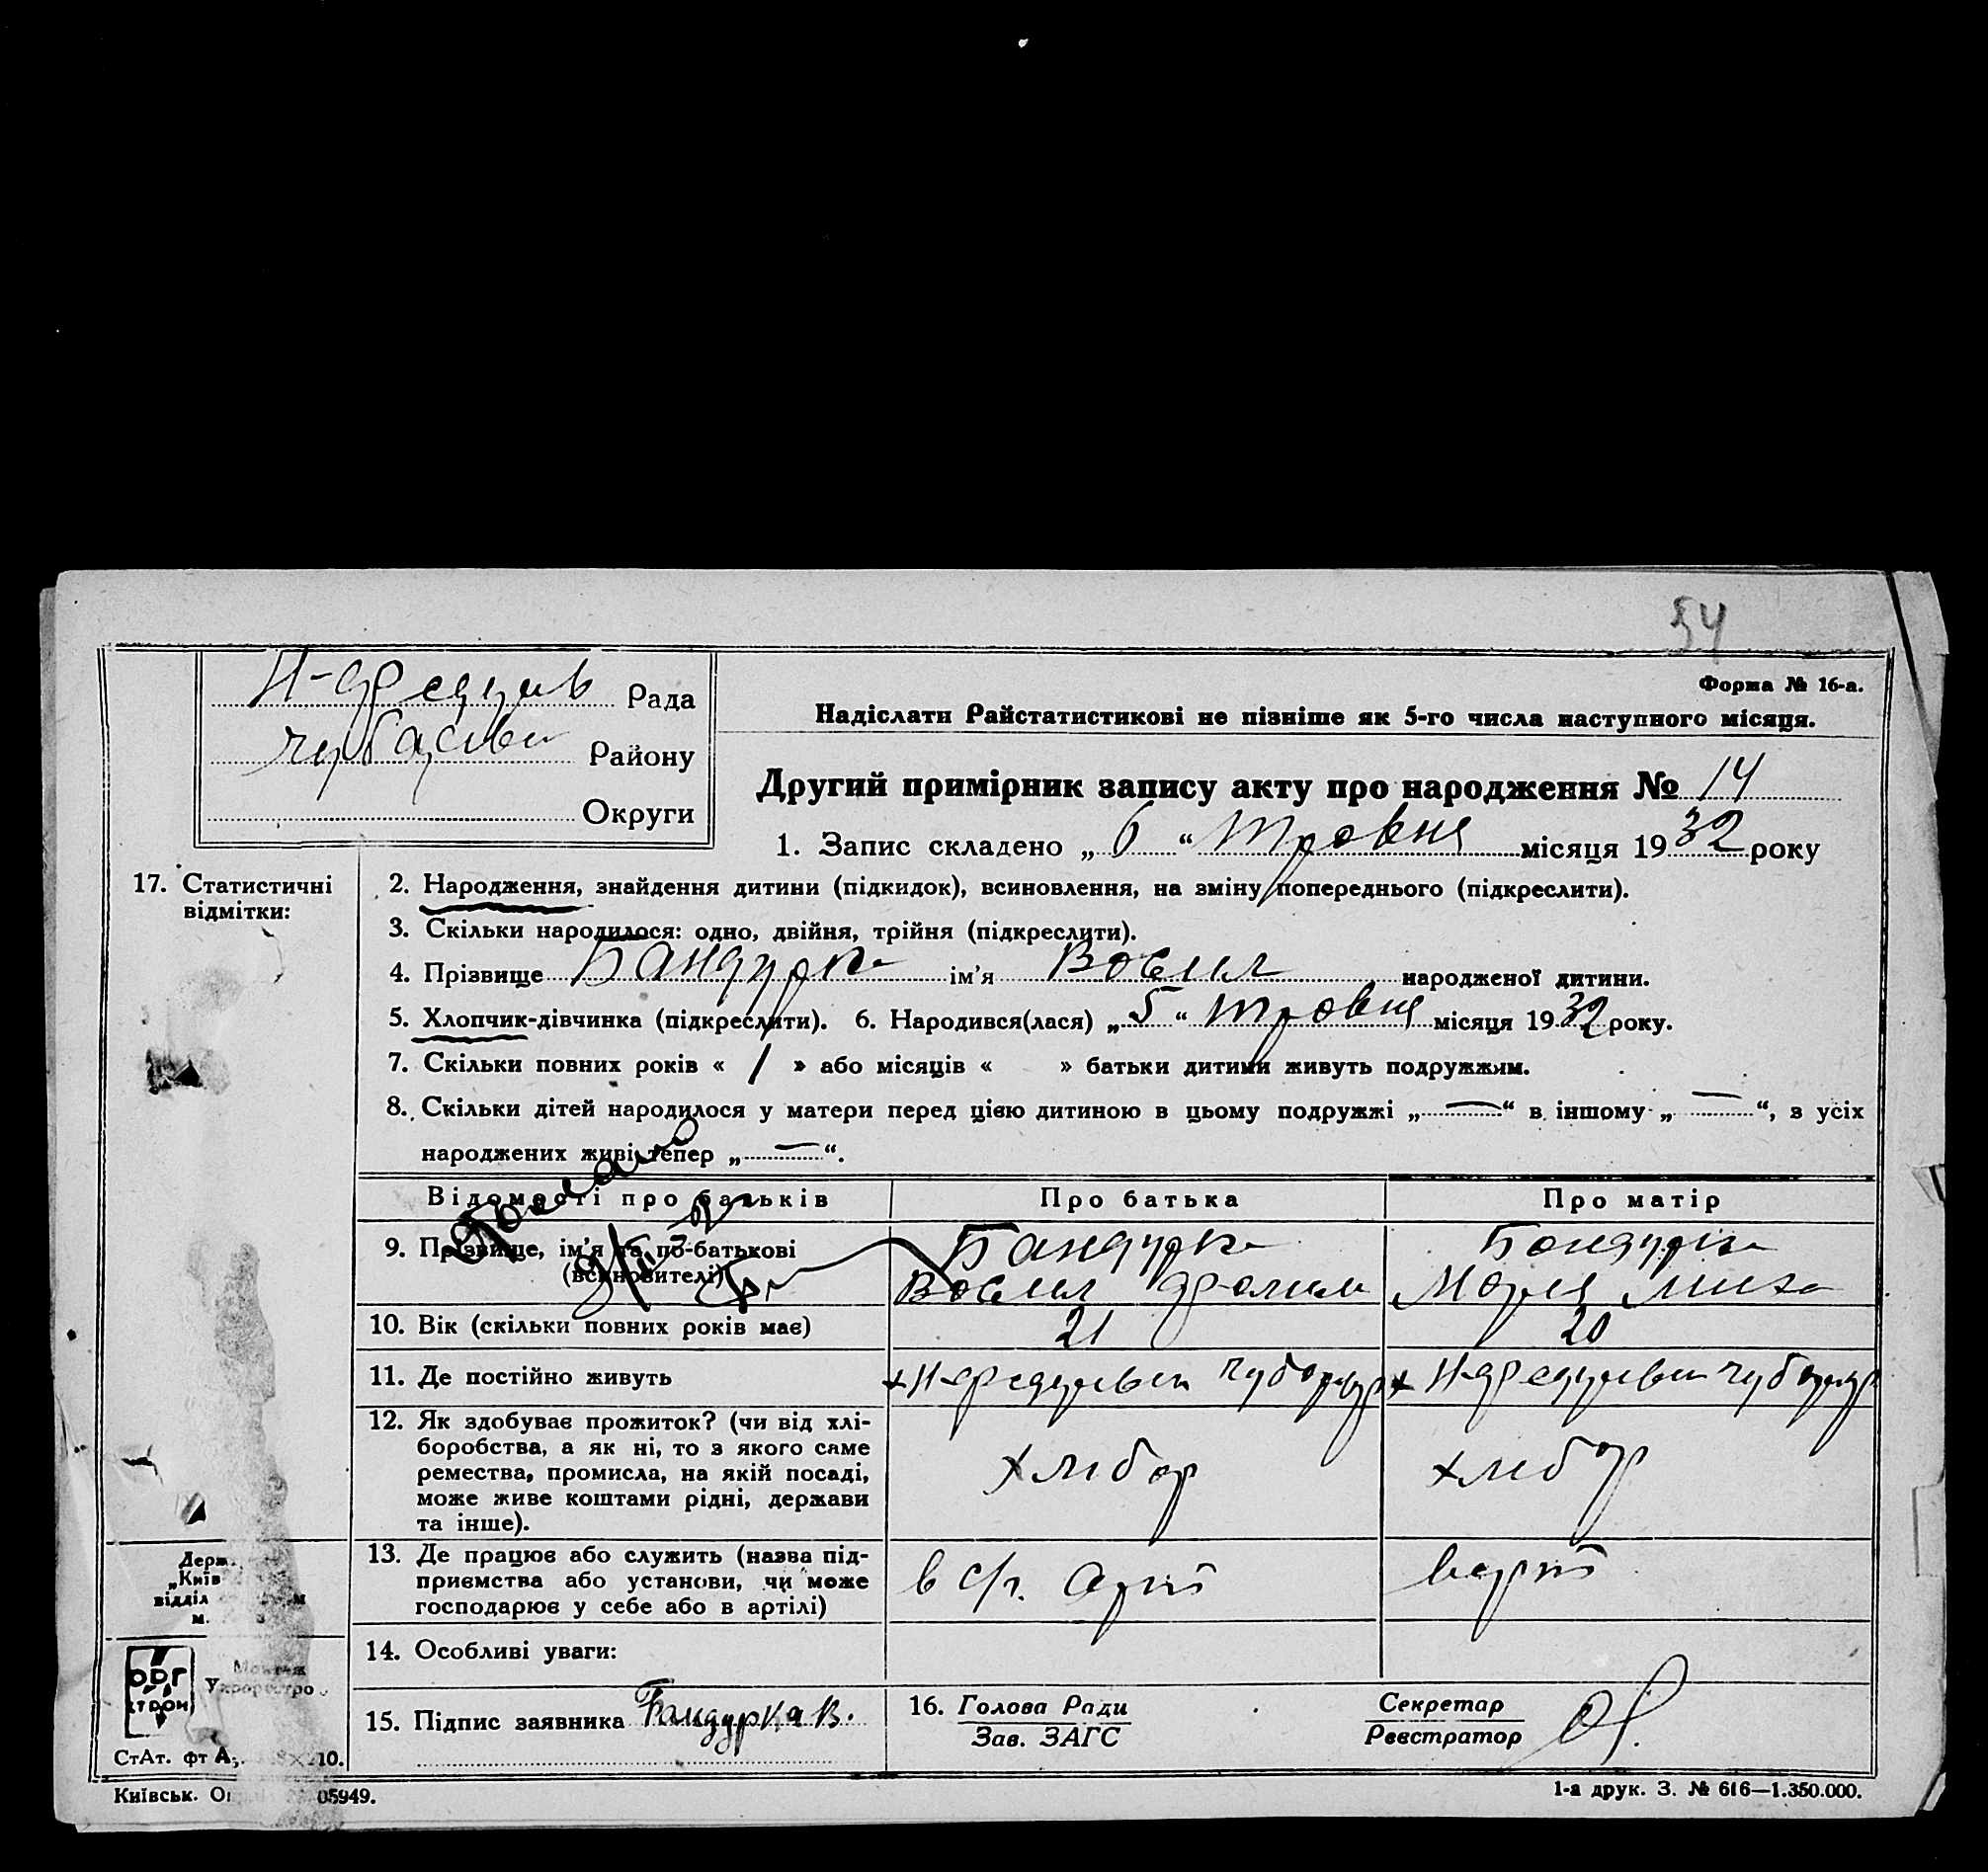 54
Рада
Району
Округи
Форма № 16-а.
Надіслати Райстатистикові не пізніше як 5-го числа наступного місяця.
Другий примірник запису акту про народження № 14
1. Запис складено „ 6 “ травня місяця 1932 року
17. Статистичні
відмітки:
2. Народження, знайдення дитини (підкидок), всиновлення, на зміну попереднього (підкреслити).
3. Скільки народилося: одно, двійня, трійня (підкреслити).
4. Прізвище Бандурка ім’я Василь народженої дитини.
5. Хлопчик-дівчинка (підкреслити). 6. Народився(лася) „ 5 “ травня місяця 1932 року.
7. Скільки повних років « 1 » або місяців « » батьки дитини живуть подружжям.
8. Скільки дітей народилося у матери перед цією дитиною в цьому подружжі „ — “ в іншому „ — “, з усіх
народжених живі тепер „ — “.
Відомості про батьків
Про батька
Про матір
9. Прізвище, ім’я та по-батькові
(всиновителі)
Бандурка
Василь
Бандурка
Мария Миха
10. Вік (скільки повних років має)
21
20
11. Де постійно живуть
12. Як здобуває прожиток? (чи від хлі-
боробства, а як ні, то з якого саме
ремества, промисла, на якій посаді,
може живе коштами рідні, держави
та інше).
хлибор
хлибор
13. Де працює або служить (назва під-
приємства або установи, чи може
господарює у себе або в артілі)
в с/г. арт
в арт
14. Особливі уваги:
15. Підпис заявника Бандурка В.
16. Голова Ради
Зав. ЗАГС
Секретар
Реєстратор
СтАт. фт А
10.
Київськ.
05949.
1-а друк. З. № 616—1.350.000.